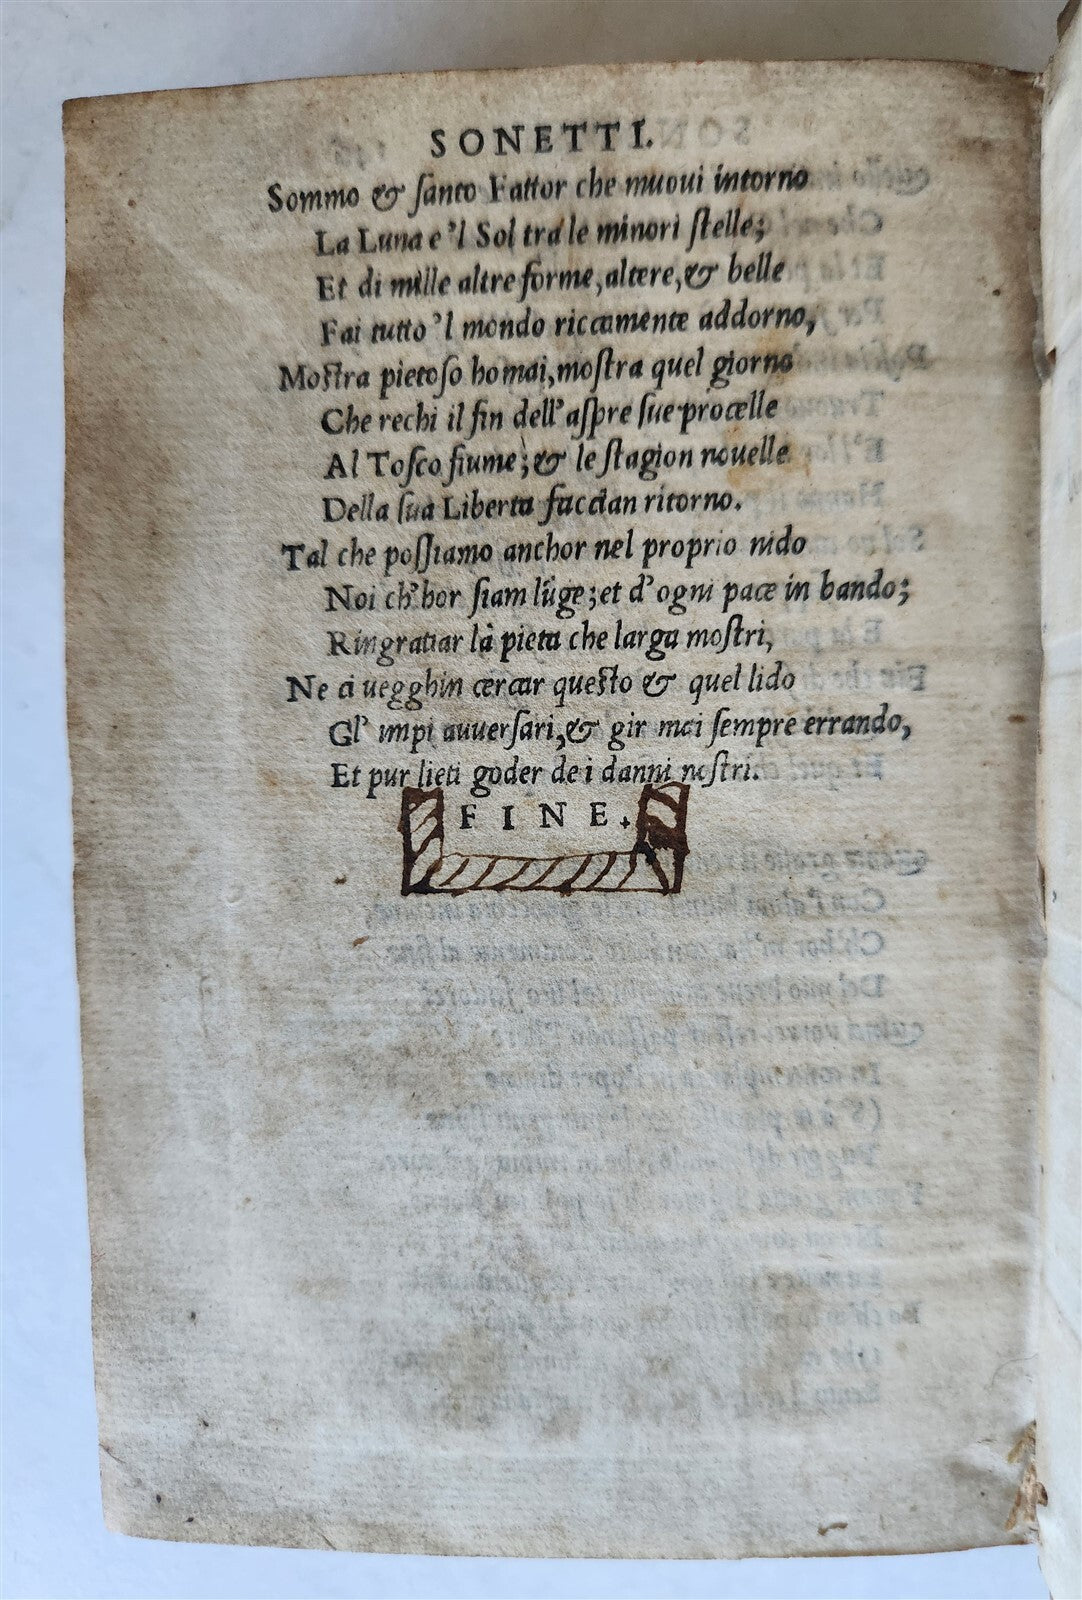 SONETTI.
Sommo & ſanto Fattor che muoui intorno
La Luna e 'l Sol tra le minori ſtelle;
Et di mille altre forme, altere, & belle
Fai tutto 'l mondo riccamente addorno,
Moſtra pietoſo homai, moſtra quel giorno
Che rechi il fin dell' aſpre ſue procelle
Al Toſco fiume; & le ſtagion nouelle
Della ſua Liberta faccian ritorno.
Tal che poſſiamo anchor nel proprio nido
Noi ch' hor ſiam lũge; et d' ogni pace in bando;
Ringratiar la pieta che larga moſtri,
Ne ci uegghin cercar queſto & quel lido
Gl' impi auuerſari, & gir mai ſempre errando,
Et pur lieti goder de i danni noſtri.
FINE.